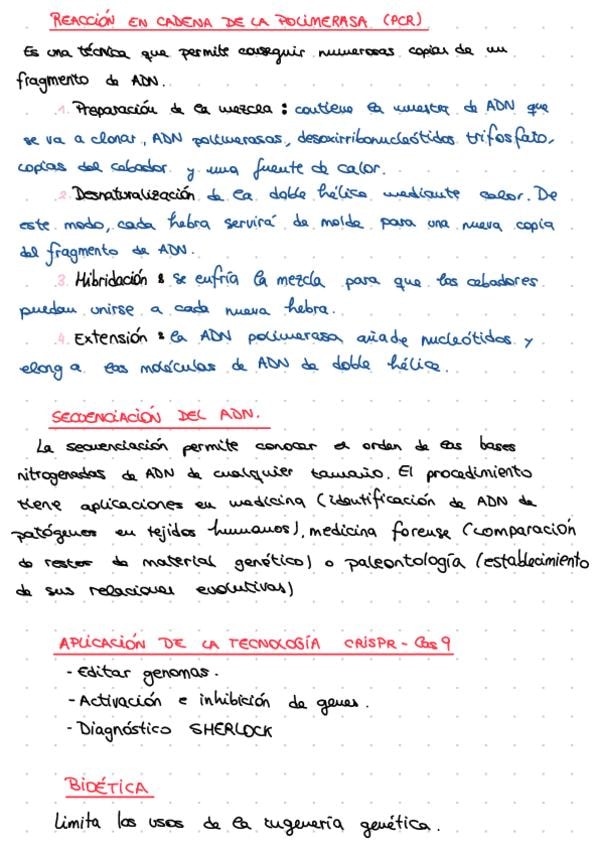 REACCIÓN EN CADENA DE LA POLIMERASA (PCR)
Es una técnica que permite conseguir numerosas copias de un
fragmento de ADN.
1. Preparación de la mezcla: contiene la muestra de ADN que
se va a clonar, ADN polimerasas, desoxirribonucleótidos trifosfato,
copias del cebador y una fuente de calor.
2. Desnaturalización de la doble hélice mediante calor. De
este modo, cada hebra servirá de molde para una nueva copia
del fragmento de ADN.
3. Hibridación: se enfría la mezcla para que los cebadores
puedan unirse a cada nueva hebra.
4. Extensión: la ADN polimerasa añade nucleótidos y
elonga las moléculas de ADN de doble hélice.
SECUENCIACIÓN DEL ADN.
La secuenciación permite conocer el orden de las bases
nitrogenadas de ADN de cualquier tamaño. El procedimiento
tiene aplicaciones en medicina (identificación de ADN de
patógenos en tejidos humanos), medicina forense (comparación
de restos de material genético) o paleontología (establecimiento
de sus relaciones evolutivas)
APLICACIÓN DE LA TECNOLOGÍA CRISPR - Cas 9
- Editar genomas.
- Activación e inhibición de genes.
- Diagnóstico SHERLOCK
BIOÉTICA
Limita los usos de la ingeniería genética.